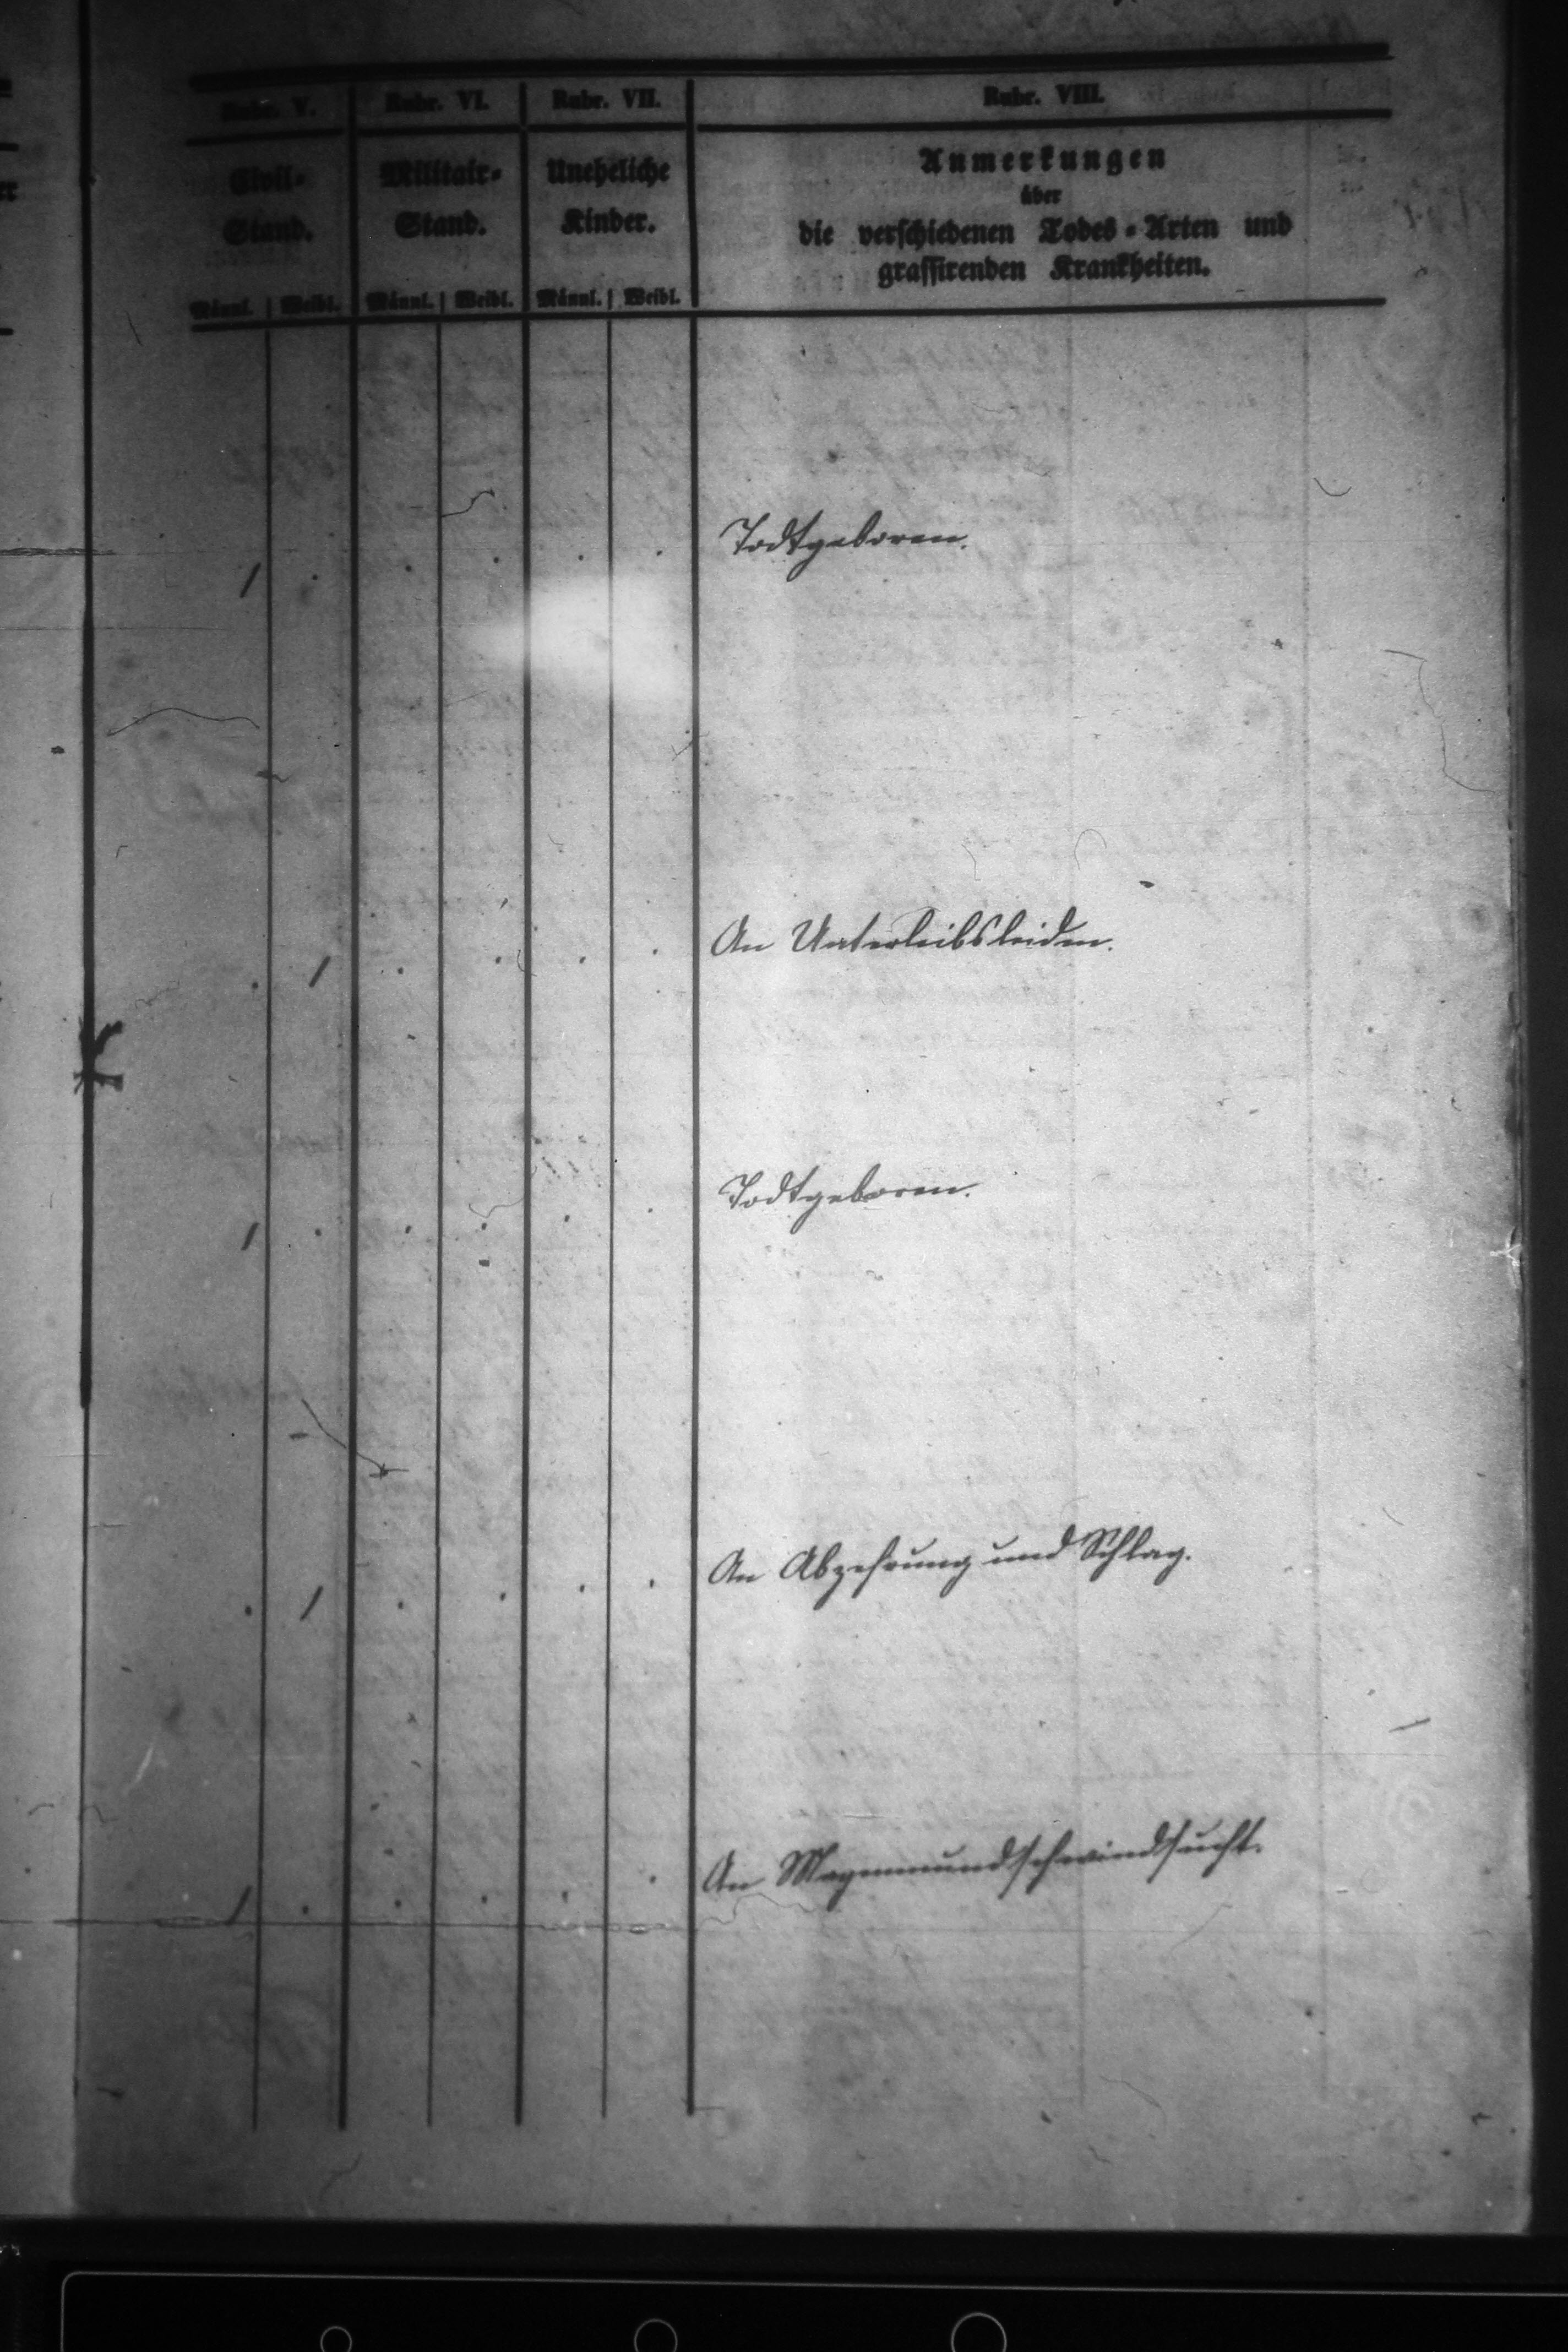 Rubr. V. Rubr. VI. Rubr. VII. Rubr. VIII.
Civil- Militair- Uneheliche Anmerkungen
Stand. Stand. Kinder. über
die verschiedenen Todes-Arten und
grassirenden Krankheiten.
Männl. Weibl. Männl. Weibl. Männl. Weibl.
1 . . . . . Todtgeboren.
. 1 . . . . An Unterleibsleiden.
1 . . . . . Todtgeboren.
. 1 . . . . An Abzehrung und Schlag.
1 . . . . . An Magenmundschwindsucht.